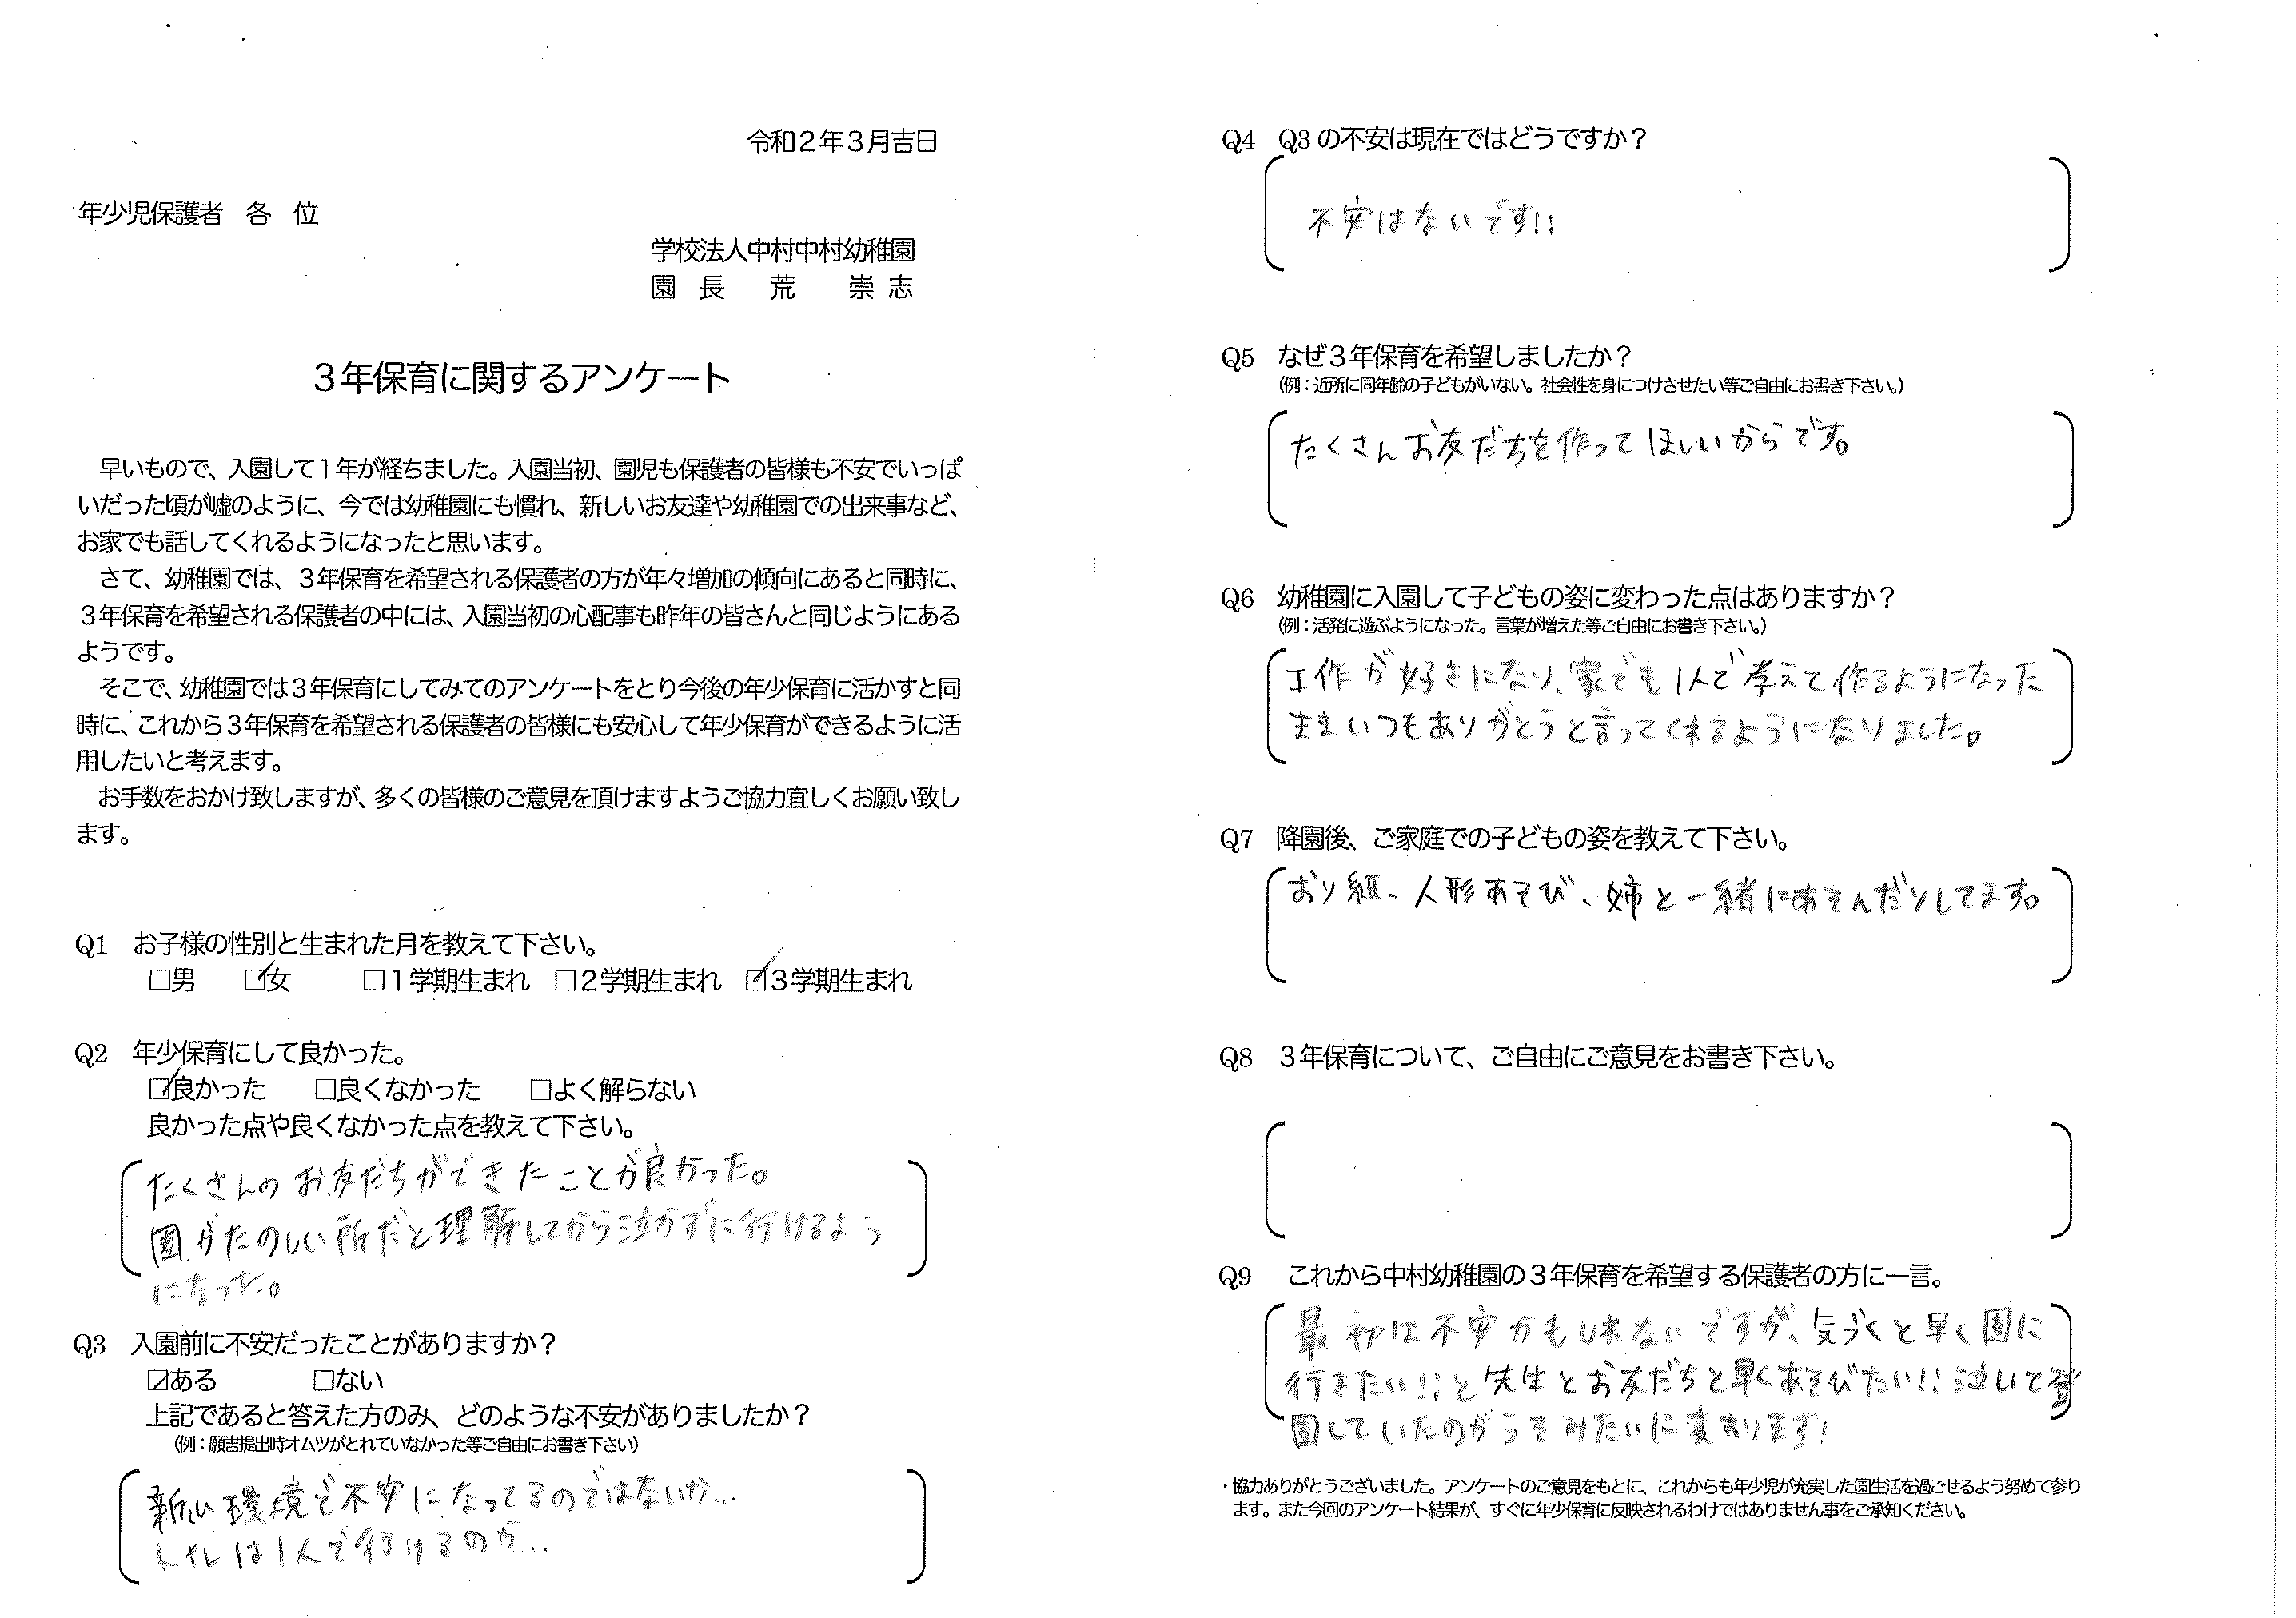 令和２年３月吉日
年少児保護者　各　位
学校法人中村中村幼稚園
園　長　　荒　　崇　志
３年保育に関するアンケート
早いもので、入園して１年が経ちました。入園当初、園児も保護者の皆様も不安でいっぱ
いだった頃が嘘のように、今では幼稚園にも慣れ、新しいお友達や幼稚園での出来事など、
お家でも話してくれるようになったと思います。
さて、幼稚園では、３年保育を希望される保護者の方が年々増加の傾向にあると同時に、
３年保育を希望される保護者の中には、入園当初の心配事も昨年の皆さんと同じようにある
ようです。
そこで、幼稚園では３年保育にしてみてのアンケートをとり今後の年少保育に活かすと同
時に、これから３年保育を希望される保護者の皆様にも安心して年少保育ができるように活
用したいと考えます。
お手数をおかけ致しますが、多くの皆様のご意見を頂けますようご協力宜しくお願い致し
ます。
Q1　お子様の性別と生まれた月を教えて下さい。
□男　☑女　□１学期生まれ　□２学期生まれ　☑３学期生まれ
Q2　年少保育にして良かった。
☑良かった　□良くなかった　□よく解らない
良かった点や良くなかった点を教えて下さい。
たくさんのお友だちができたことが良かった。
園がたのしい所だと理解してから泣かずに行けるよう
になった。
Q3　入園前に不安だったことがありますか？
☑ある　□ない
上記であると答えた方のみ、どのような不安がありましたか？
（例：願書提出時オムツがとれていなかった等ご自由にお書き下さい）
新しい環境で不安になってるのではないか…
トイレは1人で行けるのか…
Q4　Q3の不安は現在ではどうですか？
不安はないです!!
Q5　なぜ３年保育を希望しましたか？
（例：近所に同年齢の子どもがいない。社会性を身につけさせたい等ご自由にお書き下さい。）
たくさんお友だちを作ってほしいからです。
Q6　幼稚園に入園して子どもの姿に変わった点はありますか？
（例：活発に遊ぶようになった。言葉が増えた等ご自由にお書き下さい。）
工作が好きになり、家でも1人で考えて作るようになった
ままいつもありがとうと言ってくれるようになりました。
Q7　降園後、ご家庭での子どもの姿を教えて下さい。
おり紙、人形あそび、姉と一緒にあそんだりしてます。
Q8　３年保育について、ご自由にご意見をお書き下さい。
Q9　これから中村幼稚園の３年保育を希望する保護者の方に一言。
最初は不安かもしれないですが、気づくと早く園に
行きたい!!と先生とお友だちと早くあそびたい!!泣いて登
園していたのがうそみたいに変わります!
・協力ありがとうございました。アンケートのご意見をもとに、これからも年少児が充実した園生活を過ごせるよう努めて参り
ます。また今回のアンケート結果が、すぐに年少保育に反映されるわけではありません事をご承知ください。